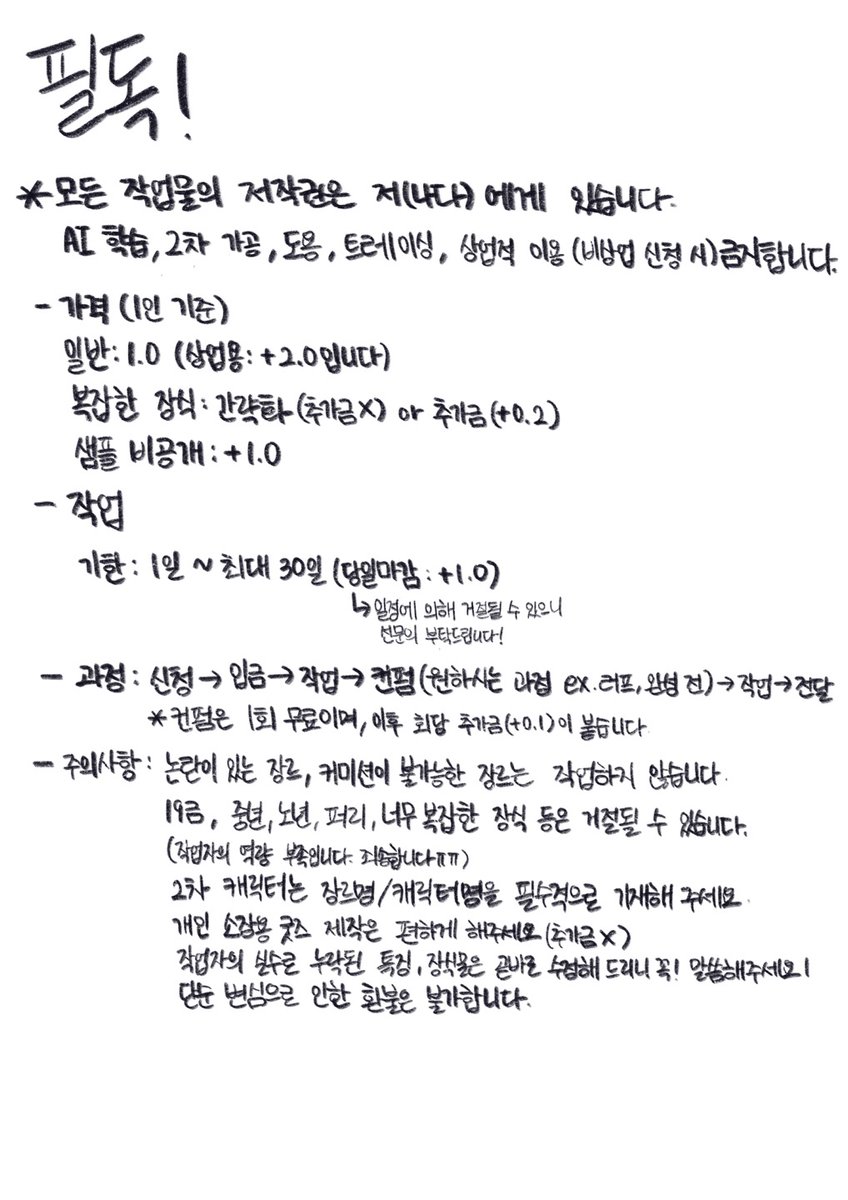 필독!
*모든 작업물의 저작권은 저(나다)에게 있습니다.
AI 학습, 2차 가공, 도용, 트레이싱, 상업적 이용(비상업 신청 시)금지합니다.
- 가격(1인 기준)
일반: 1.0 (상업용: +2.0입니다)
복잡한 장식: 간략화(추가금X) or 추가금(+0.2)
샘플 비공개: +1.0
- 작업
기한: 1일 ~ 최대 30일(당일마감: +1.0)
↳일정에 의해 거절될 수 있으니
선문의 부탁드립니다!
- 과정: 신청→입금→작업→컨펌(원하시는 과정 ex.러프, 완성 전)→작업→전달
*컨펌은 1회 무료이며, 이후 회당 추가금(+0.1)이 붙습니다.
- 주의사항: 논란이 있는 장르, 커미션이 불가능한 장르는 작업하지 않습니다.
19금, 중년, 노년, 퍼리, 너무 복잡한 장식 등은 거절될 수 있습니다.
(작업자의 역량 부족입니다. 죄송합니다ㅠㅠ)
2차 캐릭터는 장르명/캐릭터명을 필수적으로 기재해 주세요.
개인 소장용 굿즈 제작은 편하게 해주세요(추가금X)
작업자의 실수로 누락된 특징, 장식물은 곧바로 수정해 드리니 꼭! 말씀해주세요!
단순 변심으로 인한 환불은 불가합니다.